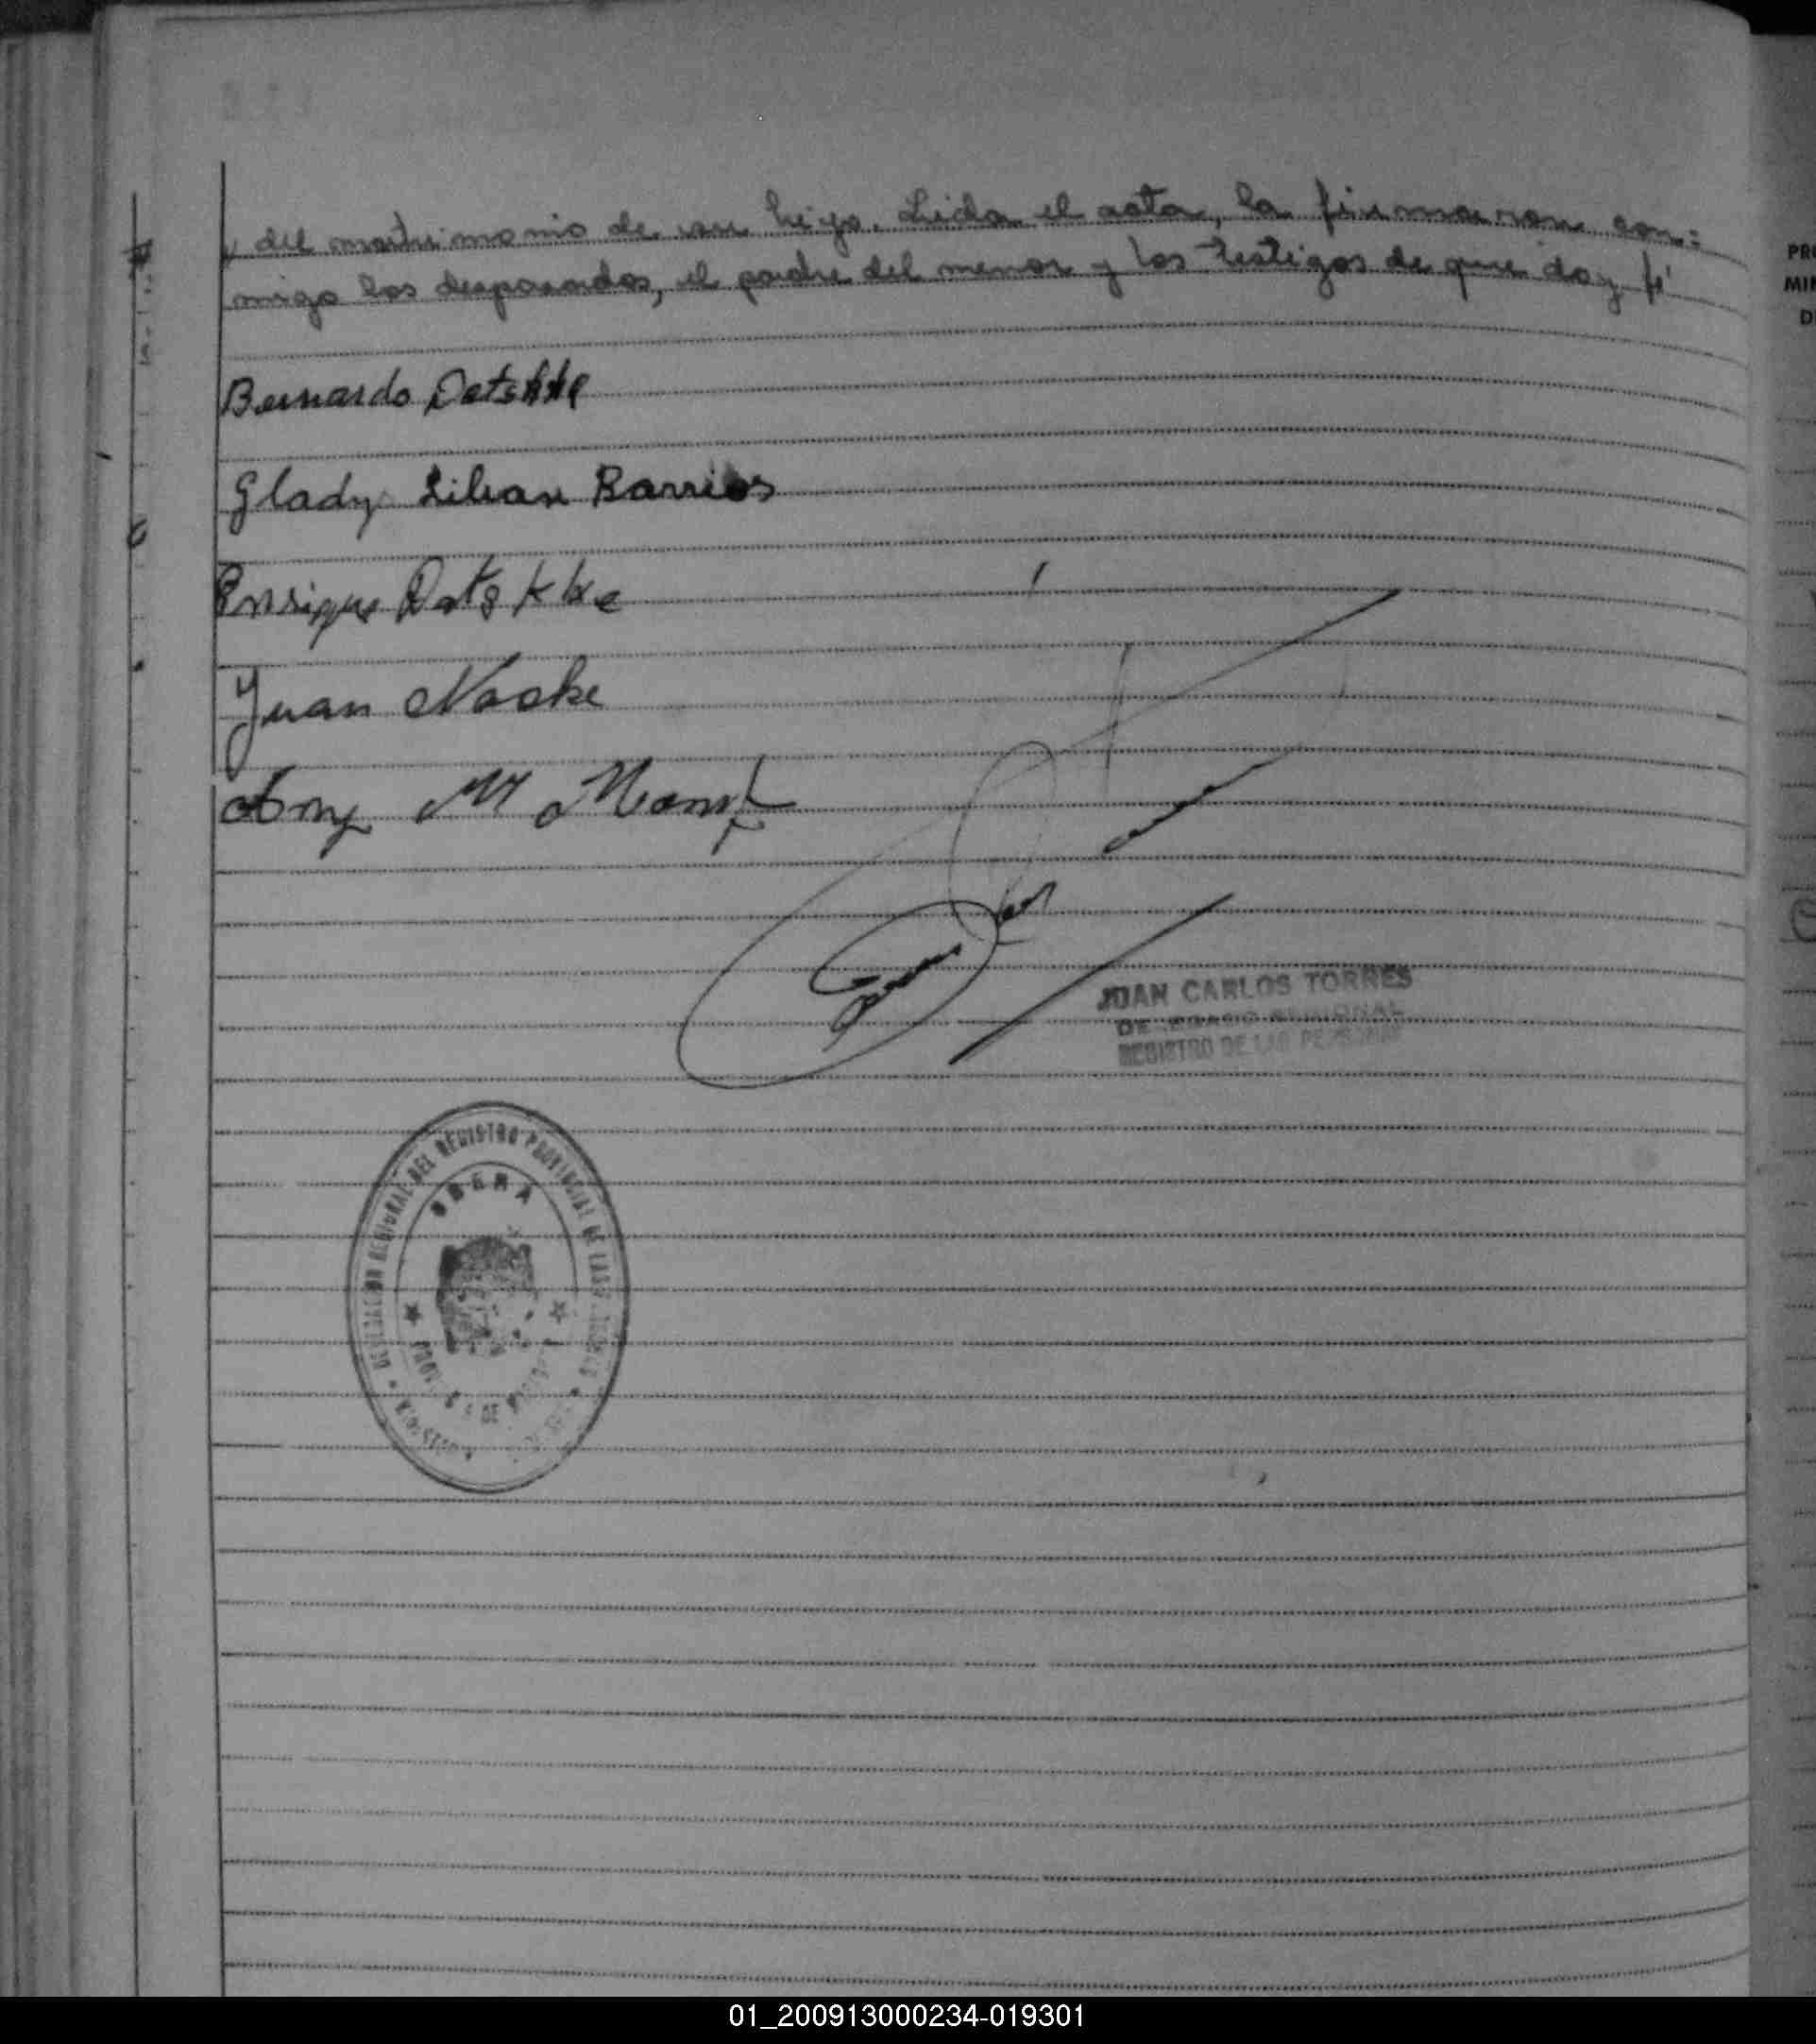 del matrimonio de su hijo. Leida el acta, la firmaron con=
migo los desposados, el padre del menor y los testigos de que doy fé
Bernardo Datskke
Glady Lilian Barrios
Enrique Datskke
Juan Nacke
M
JUAN CARLOS TORRES
DE REGIONAL
REGISTRO DE LAS PERSONAS
DELEGACION REGIONAL DEL REGISTRO PROVINCIAL DE LAS
OBERA
DE
PR
MIN
D
01_200913000234-019301